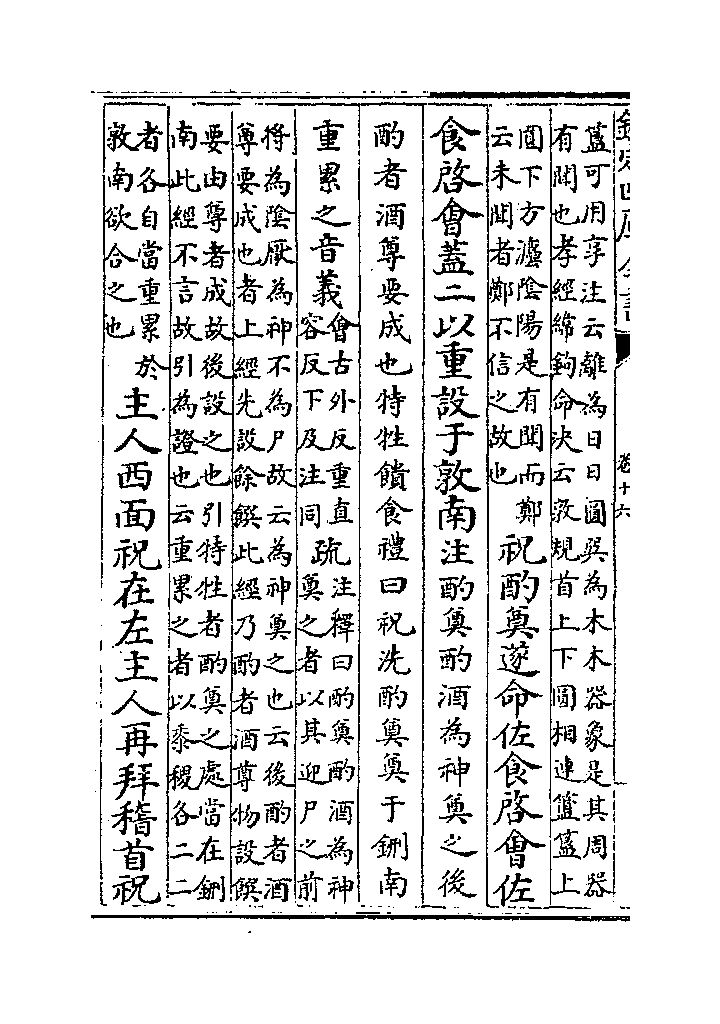 欽定四庫全書
卷十六
簋可用享注云離為日日圓巽為木木器象是其周器
有聞也孝經緯鉤命決云敦規首上下圓相連簠簋上
圓下方灋陰陽是有聞而鄭
云未聞者鄭不信之故也
祝酌奠遂命佐食啓會佐
食啓會蓋二以重設于敦南注酌奠酌酒為神奠之後
酌者酒尊要成也特牲饋食禮曰祝洗酌奠奠于鉶南
重累之音義
會古外反重直
容反下及注同
疏
注釋曰酌奠酌酒為神
奠之者以其迎尸之前
将為陰厭為神不為尸故云為神奠之也云後酌者酒
尊要成也者上經先設餘饌此經乃酌者酒尊物設饌
要由尊者成故後設之也引特牲者酌奠之處當在鉶
南此經不言故引為證也云重累之者以黍稷各二二
者各自當重累於
敦南欲合之也
主人西面祝在左主人再拜稽首祝